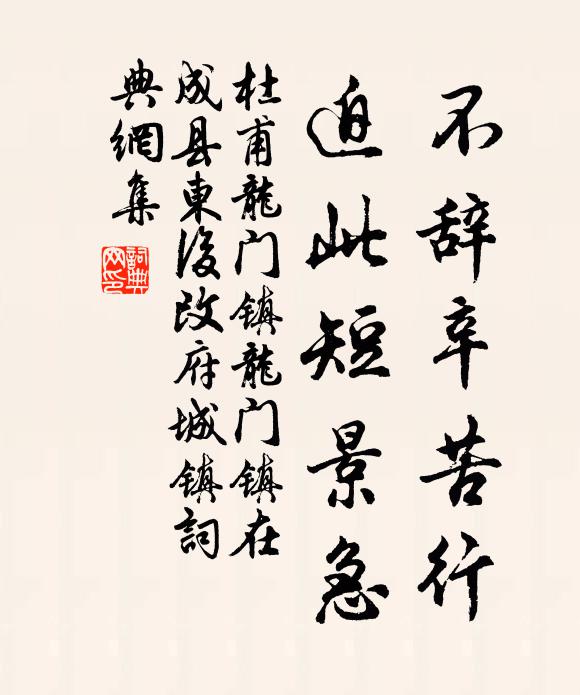 不辞辛苦行
迫此短景急
杜甫龍门镇龍门镇在
成县東後改府城镇詞
典網集
詞典网印